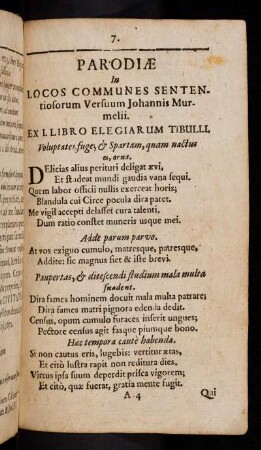 7.
PARODIÆ
In
LOCOS COMMUNES SENTEN-
tiosorum Versuum Johannis Mur-
melii.
EX I. LIBRO ELEGIARUM TIBULLI.
Voluptates fuge, & Spartam, quam nactus
es, orna.
DElicias alius perituri deligat ævi,
Et studeat mundi gaudia vana sequi.
Quem labor officii nullus exerceat horis;
Blandula cui Circe pocula dira paret.
Me vigil accepti delasset cura talenti,
Dum ratio constet muneris usque mei.
Adde parum parvo.
At vos exiguo cumulo, matresque, patresque,
Addite: sic magnus fiet & iste brevi.
Paupertas, & ditescendi studium mala multa
suadent.
Dira fames hominem docuit mala multa patrare;
Dira fames matri pignora edenda dedit.
Census, opum cumulo furaces inserit ungues;
Pectore census agit fasque piumque bono.
Hac tempora cautè habenda.
Si non cautus eris, lugebis: vertitur ætas,
Et citò lustra rapit non reditura dies.
Virtus ipsa suum deperdit prisca vigorem;
Et citò, quæ fuerat, gratia mente fugit.
A 4 Qui